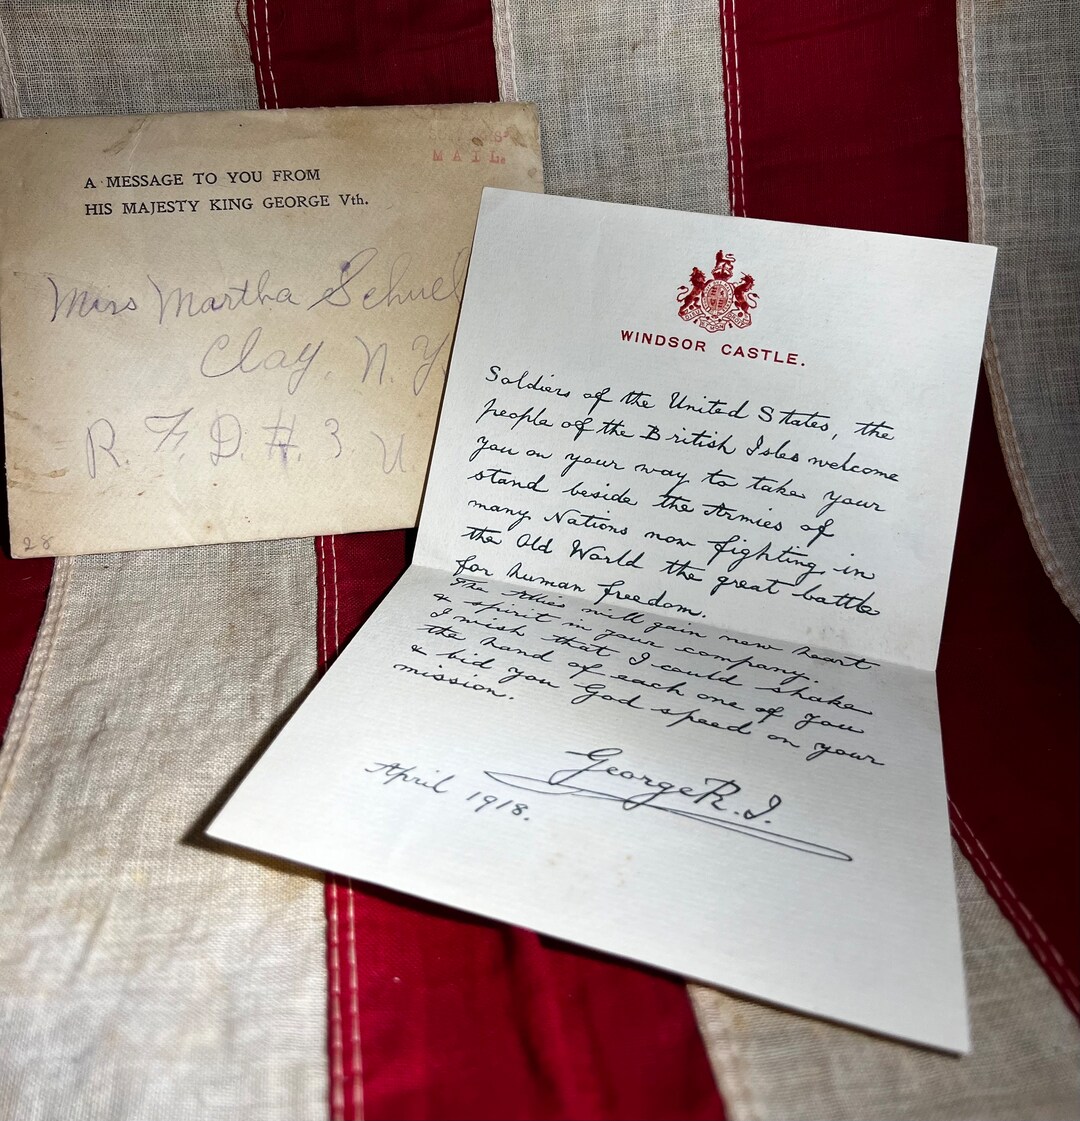 A MESSAGE TO YOU FROM
HIS MAJESTY KING GEORGE Vth.
MAIL
Miss Martha
Clay, N.Y.
R.F.D.#.3 U.
28
WINDSOR CASTLE.
Soldiers of the United States, the
people of the British Isles welcome
you on your way to take your
stand beside the Armies of
many Nations now fighting in
the Old World the great battle
for human freedom.
The Allies will gain new heart
& spirit in your company.
I wish that I could shake
the hand of each one of you
& bid you God speed on your
mission.
George R.I.
April 1918.